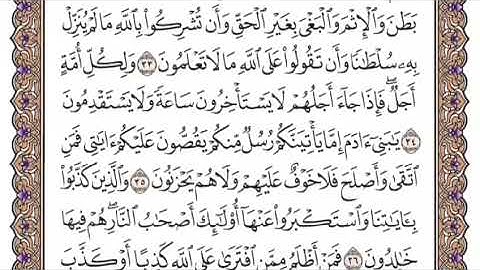 بَطَنَ وَالْإِثْمَ وَالْبَغْيَ بِغَيْرِ الْحَقِّ وَأَن تُشْرِكُوا بِاللَّهِ مَا لَمْ يُنَزِّلْ
بِهِۦ سُلْطَٰنًا وَأَن تَقُولُوا عَلَى اللَّهِ مَا لَا تَعْلَمُونَ ٣٣ وَلِكُلِّ أُمَّةٍ
أَجَلٌ ۖ فَإِذَا جَآءَ أَجَلُهُمْ لَا يَسْتَأْخِرُونَ سَاعَةً وَلَا يَسْتَقْدِمُونَ
٣٤ يَٰبَنِىٓ ءَادَمَ إِمَّا يَأْتِيَنَّكُمْ رُسُلٌ مِّنكُمْ يَقُصُّونَ عَلَيْكُمْ ءَايَٰتِى فَمَنِ
اتَّقَىٰ وَأَصْلَحَ فَلَا خَوْفٌ عَلَيْهِمْ وَلَا هُمْ يَحْزَنُونَ ٣٥ وَالَّذِينَ كَذَّبُوا
بِـَٔايَٰتِنَا وَاسْتَكْبَرُوا عَنْهَآ أُولَٰٓئِكَ أَصْحَٰبُ النَّارِ ۖ هُمْ فِيهَا
خَٰلِدُونَ ٣٦ فَمَنْ أَظْلَمُ مِمَّنِ افْتَرَىٰ عَلَى اللَّهِ كَذِبًا أَوْ كَذَّبَ